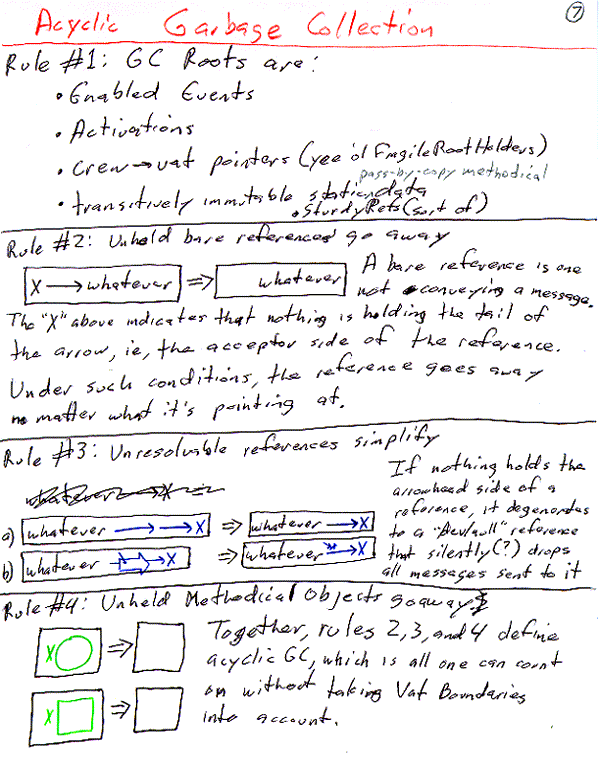 Acyclic Garbage Collection
7
Rule #1: GC Roots are:
• Enabled Events
• Activations
• Crew → vat pointers (yee ol FragileRootHolders)
pass-by-copy methodical
• transitively immutable static data
• SturdyRefs (sort of)
Rule #2: Unheld bare references go away
X → whatever ⇒ whatever
A bare reference is one
not conveying a message.
The "X" above indicates that nothing is holding the tail of
the arrow, ie, the acceptor side of the reference.
Under such conditions, the reference goes away
no matter what it's pointing at.
Rule #3: Unresolvable references simplify
whatever → X =
a) whatever → → X ⇒ whatever → X
b) whatever → X ⇒ whatever → X
If nothing holds the
arrowhead side of a
reference, it degenerates
to a "dev/null" reference
that silently(?) drops
all messages sent to it
Rule #4: Unheld Methodical Objects go away
X ⇒
X ⇒
Together, rules 2, 3, and 4 define
acyclic GC, which is all one can count
on without taking Vat Boundaries
into account.